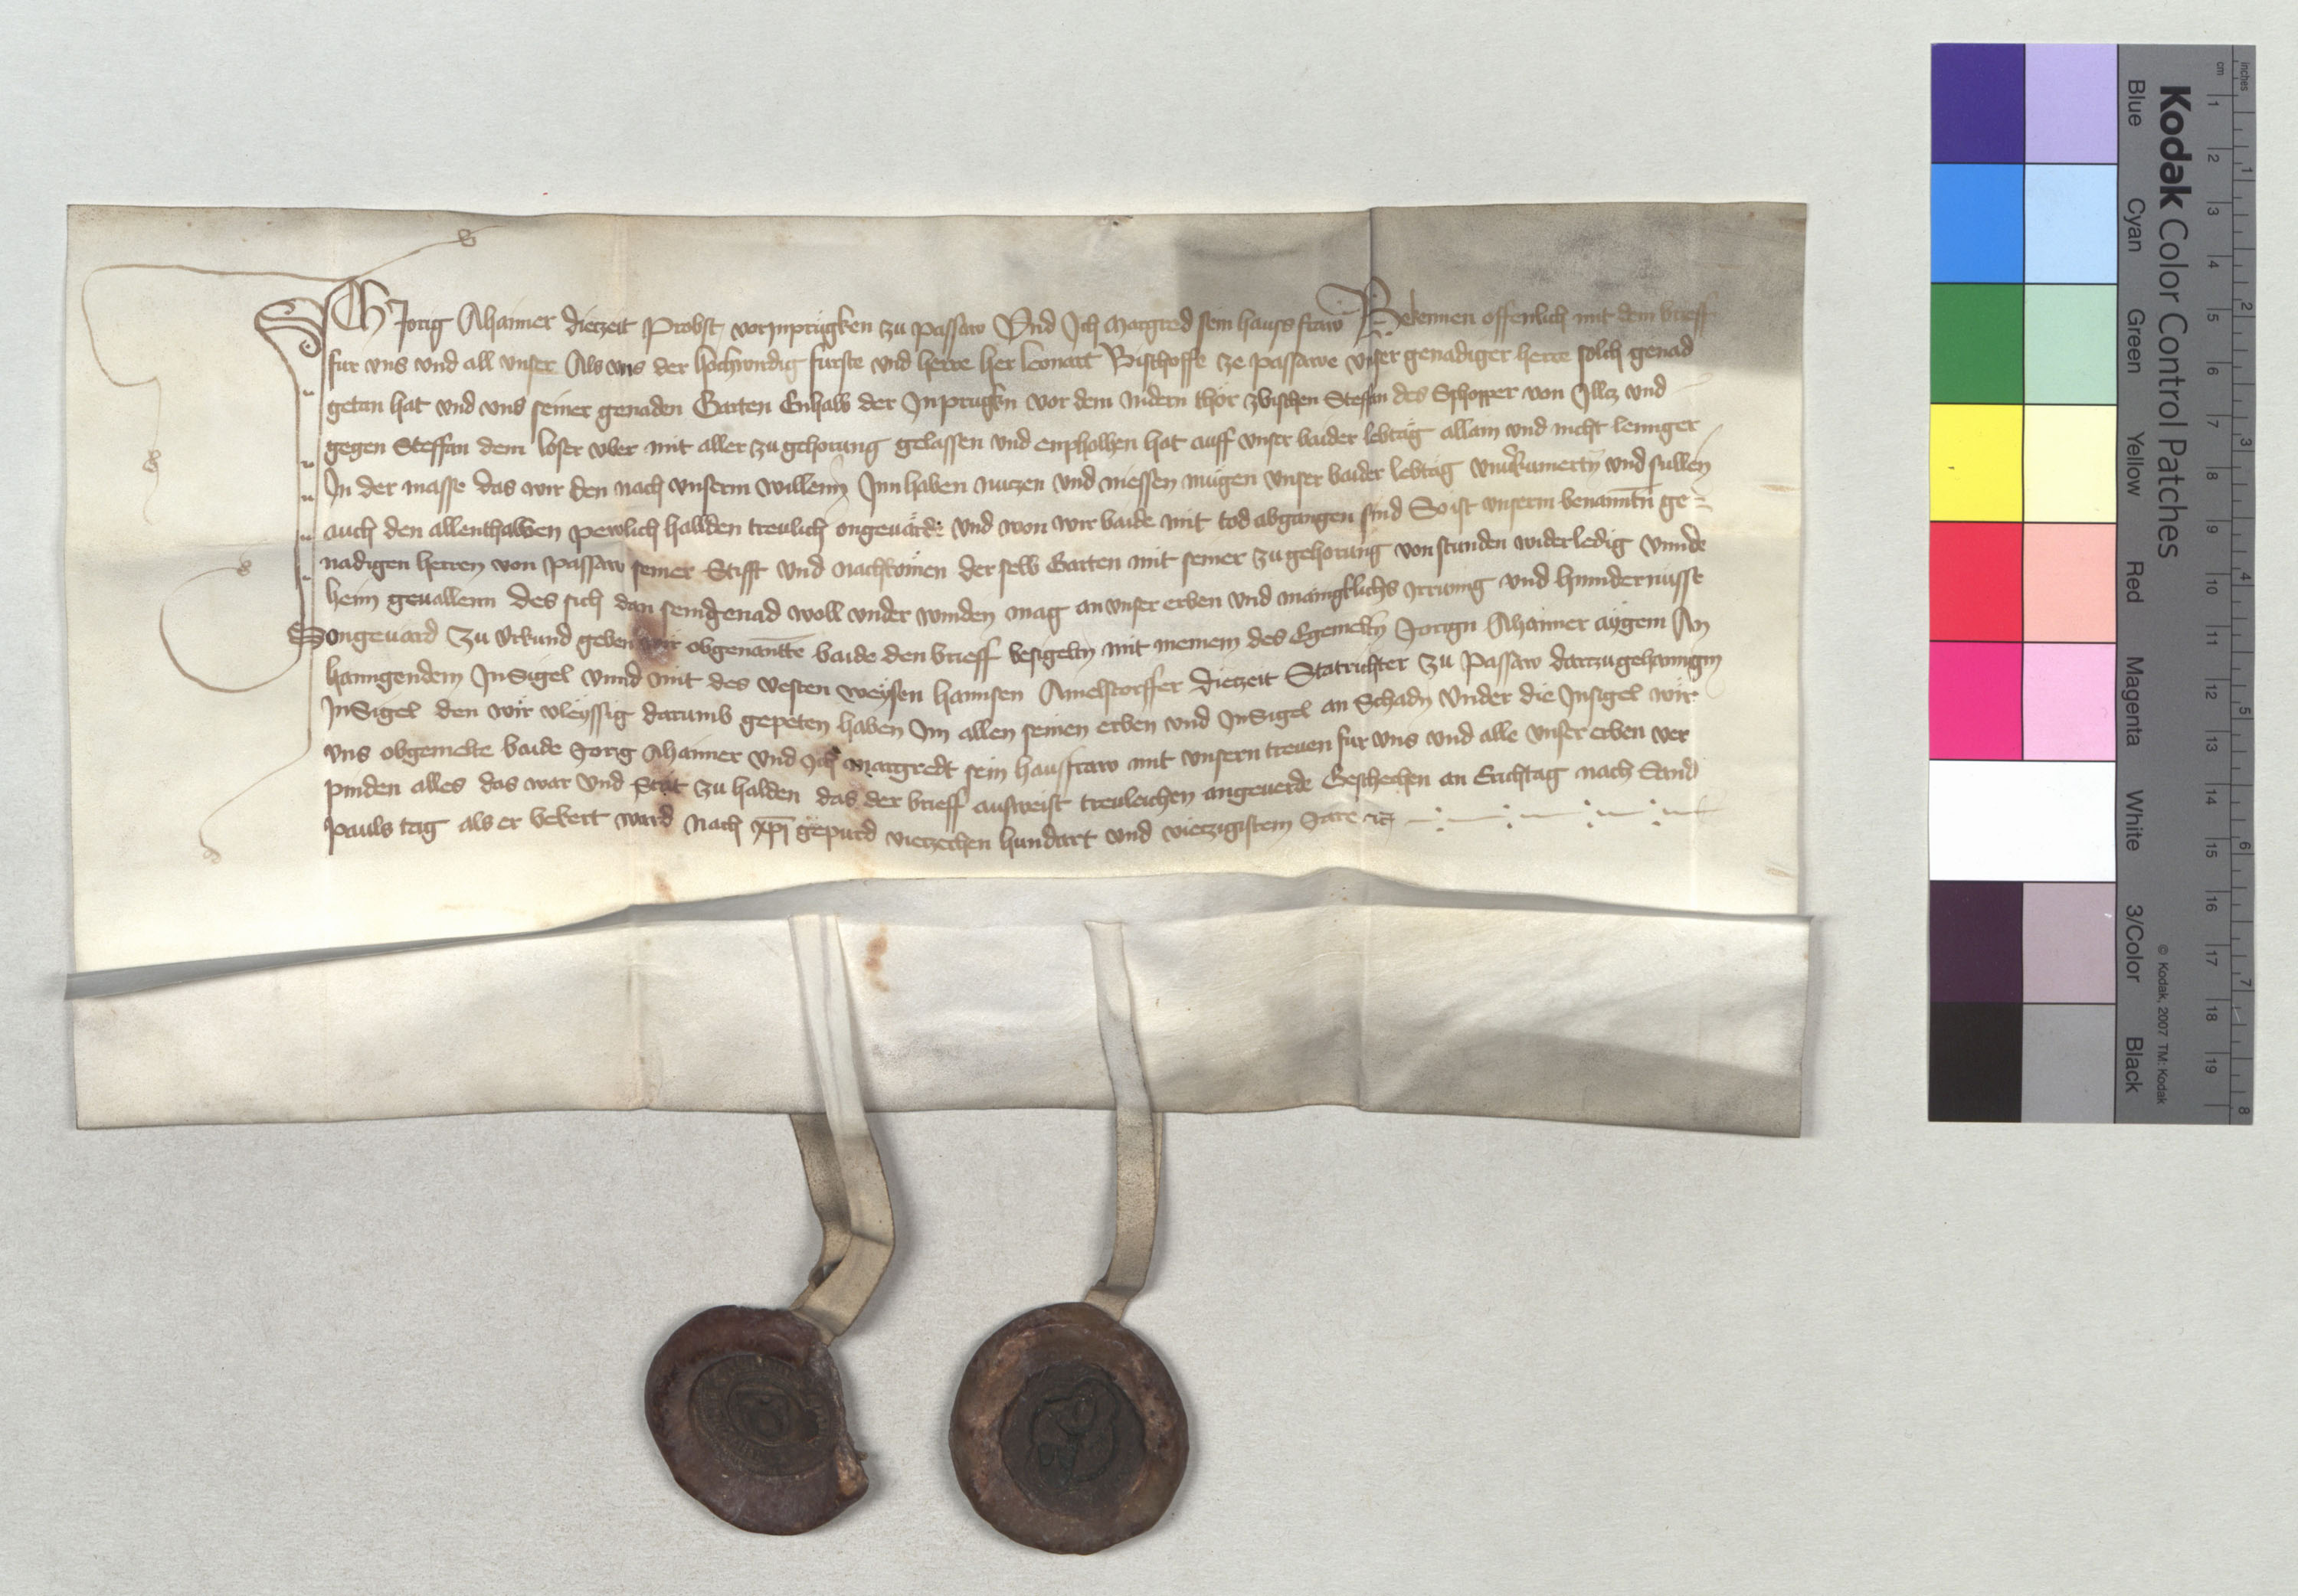 ICh Jorig Ahaimer dietzeit Probst vorynprugken zu passaw Und Ich Margred sein hausfraw Bekennen offenlich mit dem brieff
fur uns und all unser Als uns der hochwirdig furste und herre her leonart Bischoffe ze passawe unser genadiger herre solch genad
getan hat und uns seiner genaden Garten Enhalb der Inprugkn vor dem nidern thör zbischen Steffan des Schopper von Illcz und
gegen Steffan dem loser uber mit aller zugehorung gelassen und enpholhen hat auff unser baider lebtäg allain und nicht lennger
In der masse das wir den nach unserm willenn Innhaben nutzen und niessen mügen unser baider lebtäg unuerkumertn und sullen
auch den allenthalben pewlich hallden treulich ongeuärde und wen wir baide mit tod abgangen sind So ist unserm benanntn ge=
nadigen herren von passaw seiner Stifft und nachkomen derselb Garten mit seiner zugehorung von stunden widerledig unnde
heim geuallenn des sich dan sein genad woll under winden mag an unser erben und mänigklichs irrunng und hinndernüsse
ongeuärd Zu Urkund geben wir obgenantte baide den brieff besigeltn mit meinem des Egemeltn Jorign Ahaimer aygem An
hanngendem InSigel unnd mit des vesten weysen hannsen Amelstorffer dietzeit Statrichter zu Passaw dartzugehanngen
InSigel den wir vleyssig darumb gepeten haben Im allen seinen erben und InSigel an Schadn Under die Insigel wir
uns obgemelte baide Jorig Ahaimer und Ich margredt sein hausfraw mit unsern treuen fur uns und alle unser erben ver
pinden alles das war und stät zu halden das der brieff ausweist treuleichen angeuerde Geschechen an Erichtag nach Sand
Pauls tag als er bekert ward nach xpi gepurd vierzechen hundart und vierzigistem Jare etc
Kodak Color Control Patches
Blue Cyan Green Yellow Red Magenta White 3/Color Black
© Kodak, 2007 TM: Kodak
cm 1 2 3 4 5 6 7 8 9 10 11 12 13 14 15 16 17 18 19
inches 1 2 3 4 5 6 7 8